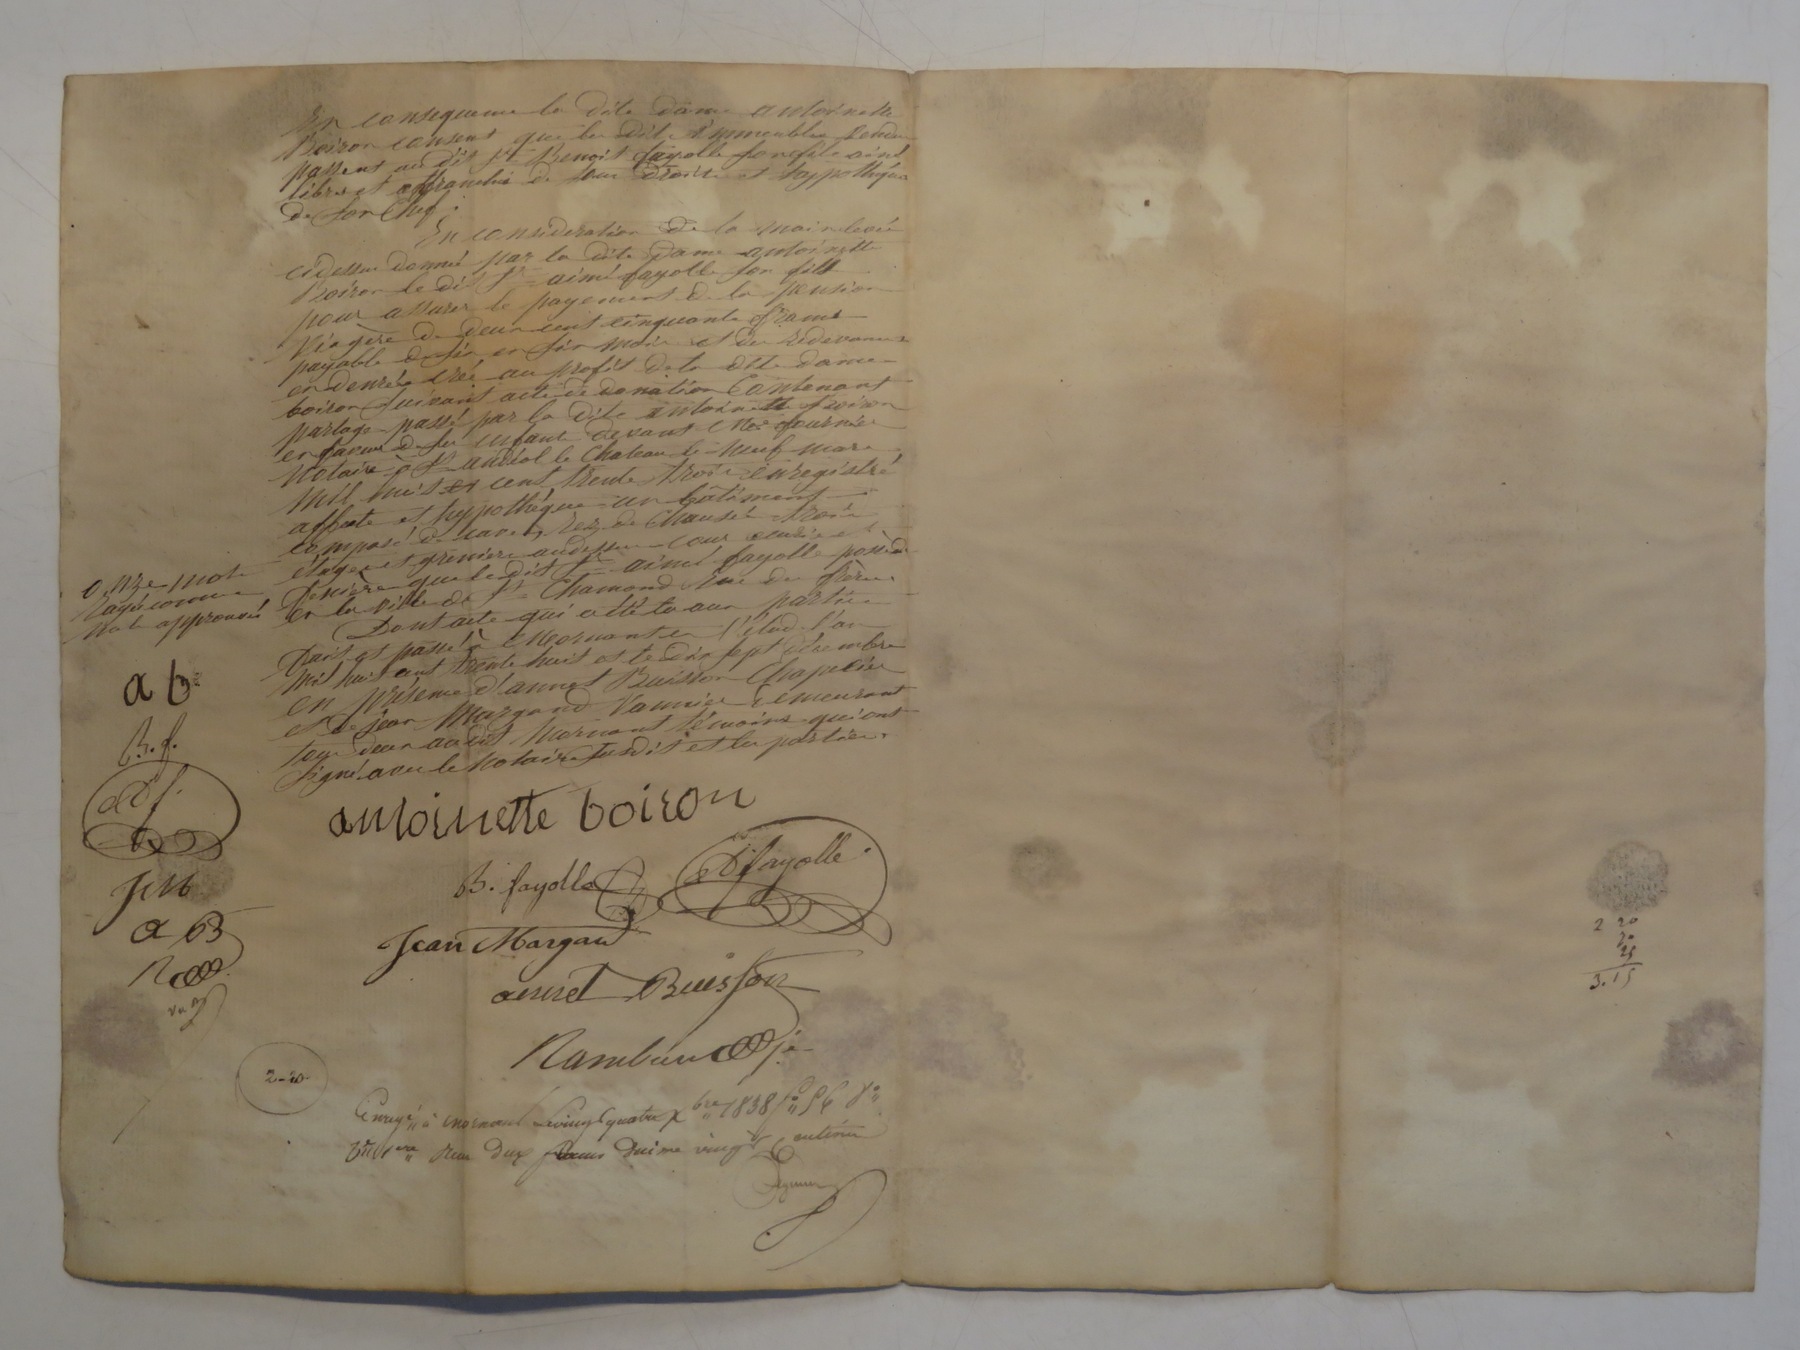 En consequence la dite dame antoinette
Boiron consent que les dits immeubles vendus
passent au dit Sr Benoit fayolle son fils ainé
libres et affranchis de tous droits et hypothéques
de son Chef.
En consideration de la main levée
cidessus donnée par la dite dame antoinette
Boiron le dit Sr aimé fayolle son fils
pour assurer le payement de la pension
viagère de deux cent cinquante francs
payable de six en six mois et des redevances
en denrées créé au profit de la dite dame
boiron suivant acte de donation Contenant
partage passé par la dite antoinette Boiron
en faveur de ses enfants devant Me fournier
Notaire à St andéol le Chateau le neuf mars
mil huit cent trente trois enregistré
affecte et hypothéque un bâtiment
composé de caves, rez de Chaussée trois
étages et greniers audessus cour écurie et
feniére que le dit Sr aimé fayolle posséde
en la ville de St Chamond rue du
Dont acte qui a été lu aux parties
fait et passé à Mornant en l'étude l'an
mil huit cent trente huit et le dix sept décembre
en présence d'annet Buisson Chapelier
et de jean Margand Vannier demeurant
tous deux audit Mornant témoins qui ont
signé avec le Notaire susdit et les parties.
Onze mots
Rayés comme
nuls approuvés
a b
B. f.
af.
JM
a B
R
antoinette boiron
B. fayolle
A fayolle
Jean Margand
annet Buisson
2-20.
Enregé à mornant le vingt quatre Xbre 1838 fo 56 Vo
reçu deux francs décime vingt centimes
2 20
70
25
3.15